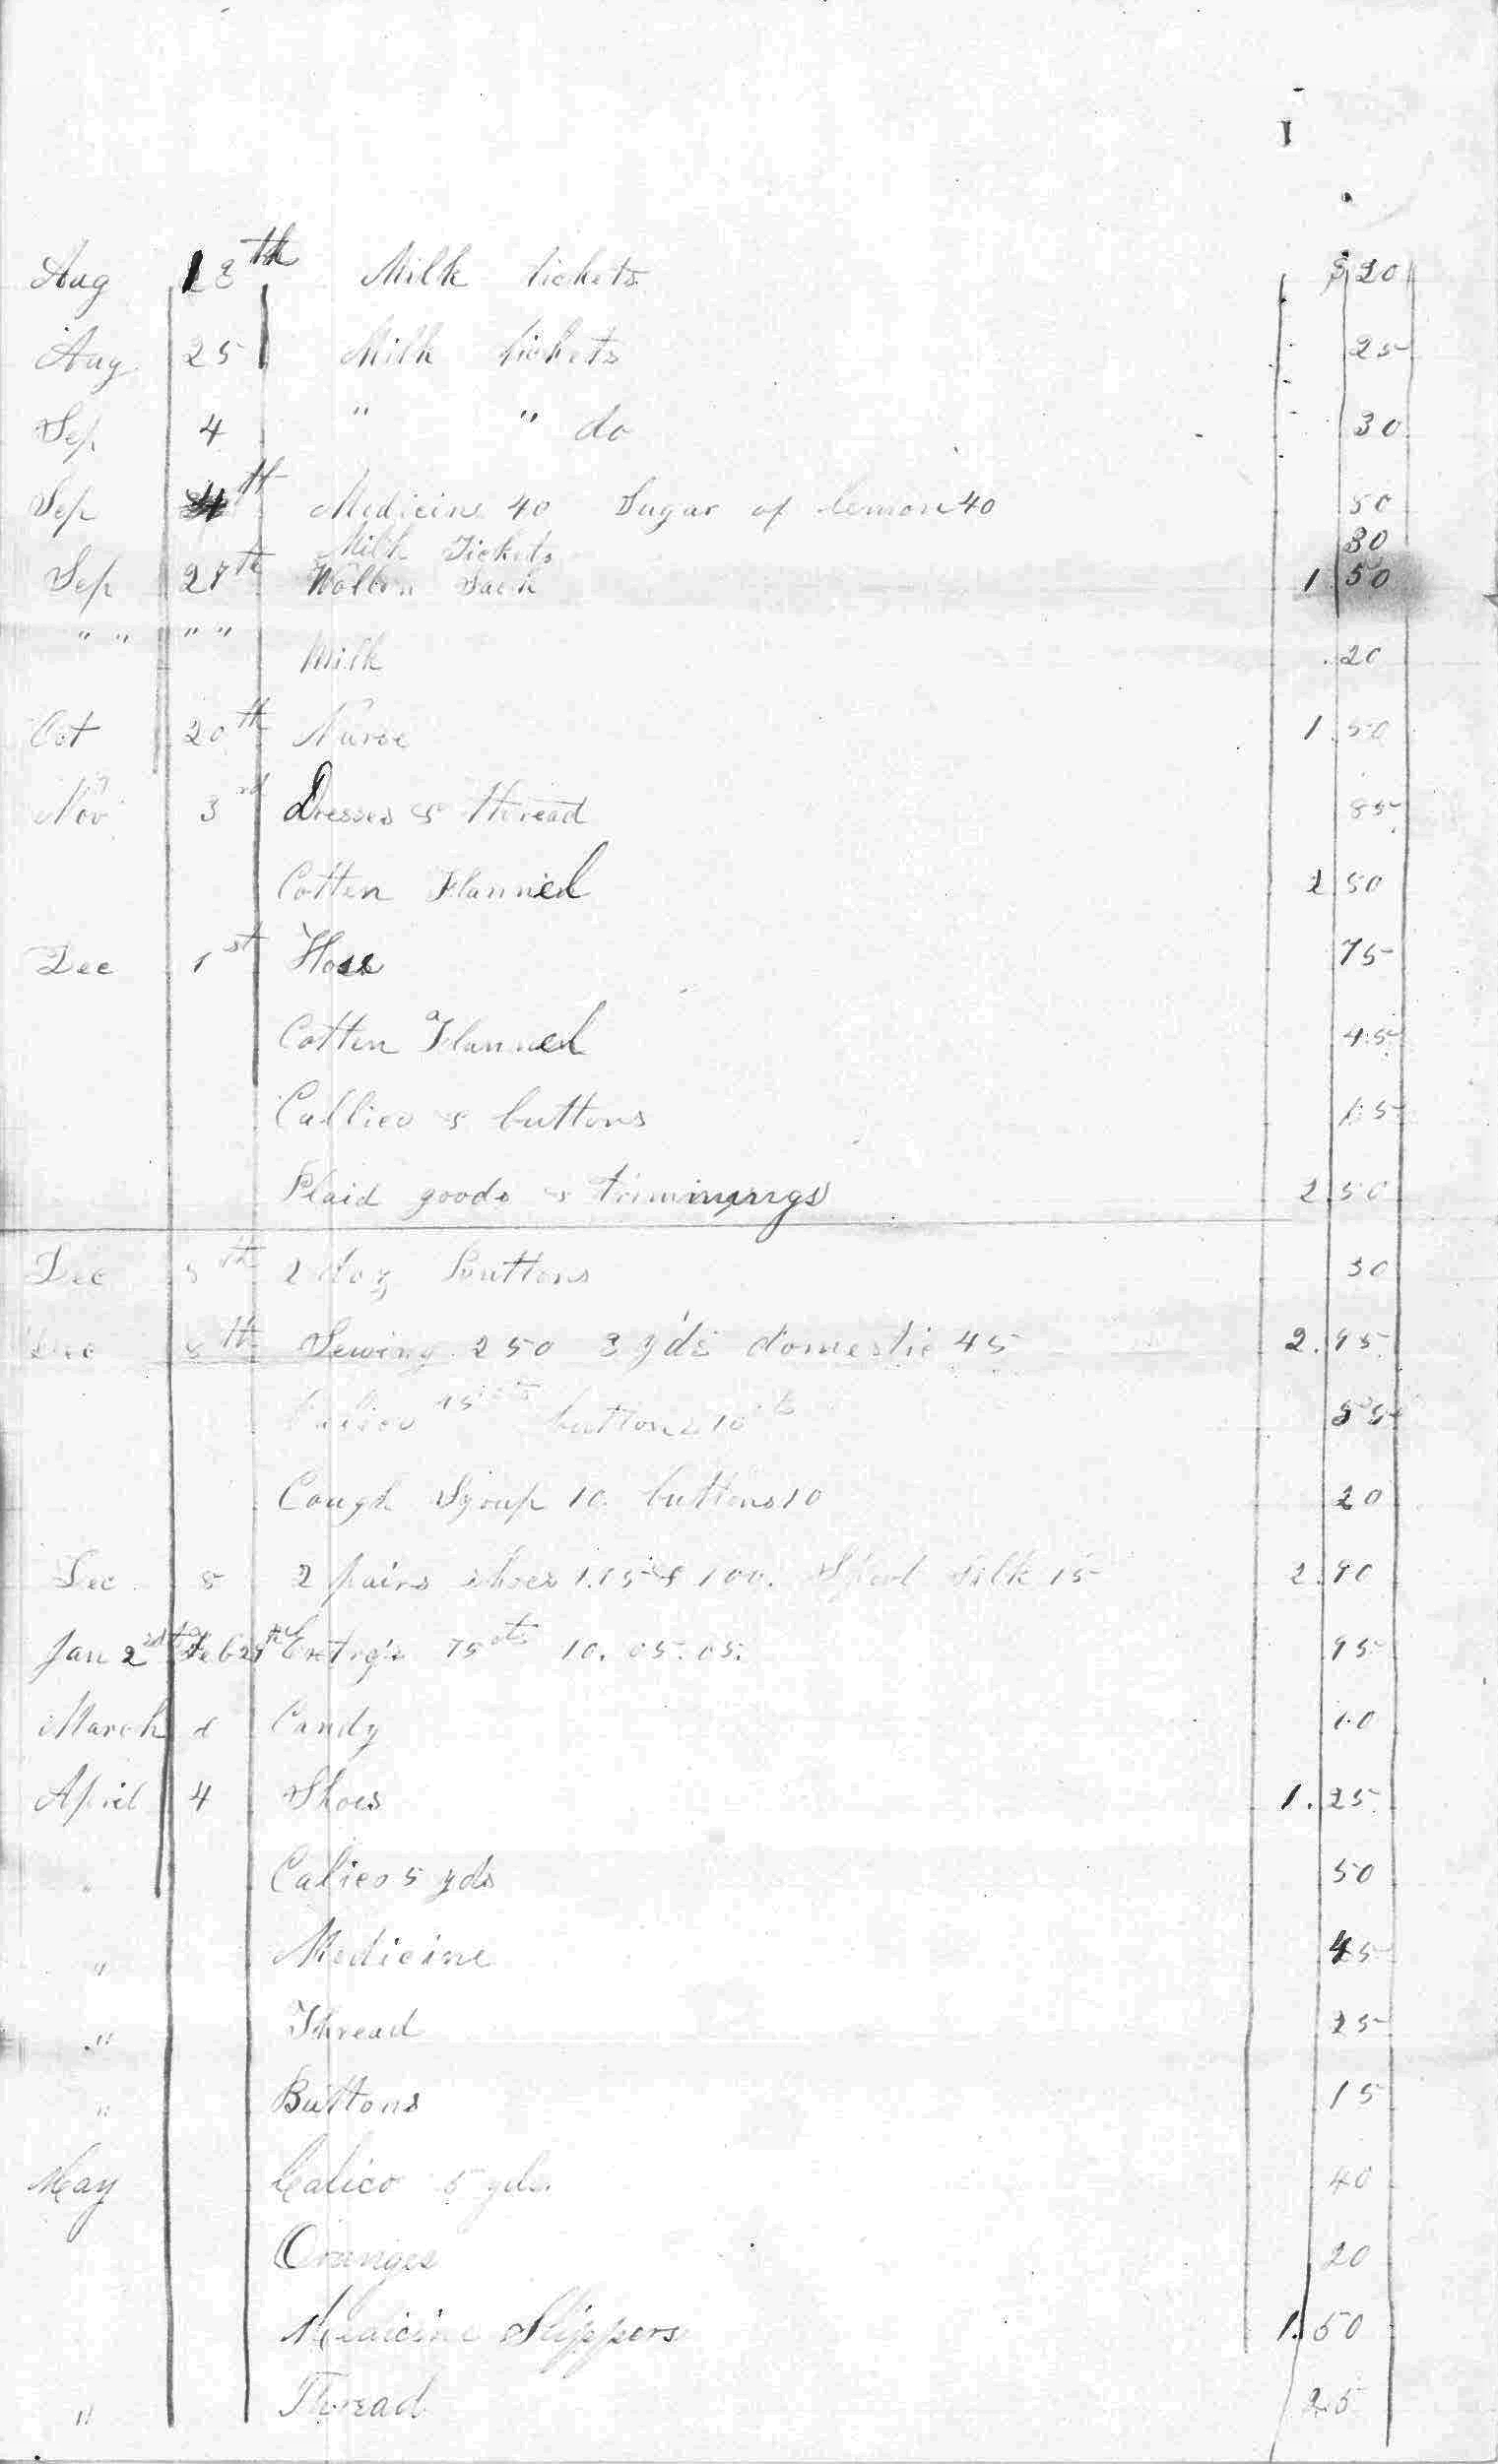 Aug 18th Milk tickets $ 20
Aug 25 Milk tickets 25
Sep 4 " " do 30
Sep 4th Medicine 40 Sugar of lemon 40 80
Milk Tickets 30
Sep 27th Wollen Sack 1 50
" " " " Milk .20
Oct 20th Nurse 1.50
Nov 3rd Dresses & thread 85
Cotten Flannel 2 50
Dec 1st Hose 75
Cotten Flannel 45
Callico & buttons
Plaid goods & trimmings 2.50
Dec 2 doz Buttons 30
Dec 8th Sewing 250 3 yds domestic 45 2.95
Calico buttons 10cts
Cough Syrup 10. buttons 10 20
Dec 8 2 pairs shoes & 100. Spool silk 15 2.90
Jan 2nd to Feb Extra's 75cts 10. 05. 05. 95
March Candy 10
April 4 Shoes 1.25
" Calico 5 yds 50
" Medicine 45
" Thread 25
" Buttons 15
May Calico 5 yds. 40
Oranges 20
Medicine Slippers 1.50
" Thread 25